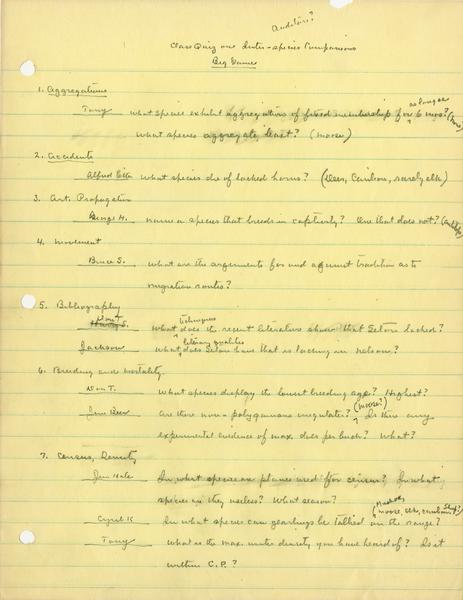 Auditors?
Class Quiz on Inter-species Comparisons
Big Game
1. Aggregations
Tony what species exhibit aggregations of fixed membership for as long as 6 mos?
what species aggregate least? (moose)
2. Accidents
Alfred what species die of locked horns? (Deer, Caribou, rarely elk)
3. Art. Propagation
George H. name a species that breeds in captivity? One that does not?
4. Movement
Bruce S. what are the arguments for and against tradition as to
migration routes?
5. Bibliography
Don T. what techniques does the recent literature show that Seton lacked?
Jackson what literary qualities does Seton have that is lacking in Nelson?
6. Breeding and Mortality
Don T. what species display the lowest breeding age? Highest?
Jim Beer are there non-polygamous ungulates? (moose?) Is there any
experimental evidence of max. does per buck? What?
7. Census, Density
Jim Hale In what species are planes used for census? In what
species are they useless? What season?
Cyril K In what species can yearlings be tallied on the range? (moose, elk, caribou
Tony what is the max. winter density you have heard of? Is it
within C.P.?